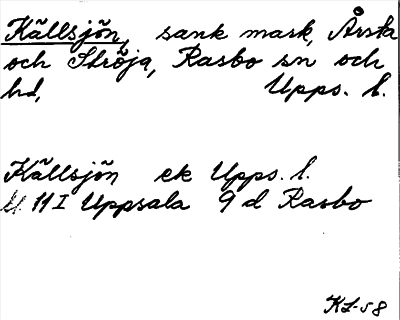 Källsjön, sank mark, Årsta
och Ströja, Rasbo sn och
hd, Upps. l.
Källsjön ek Upps. l.
11 I Uppsala 9 d Rasbo
KL-58